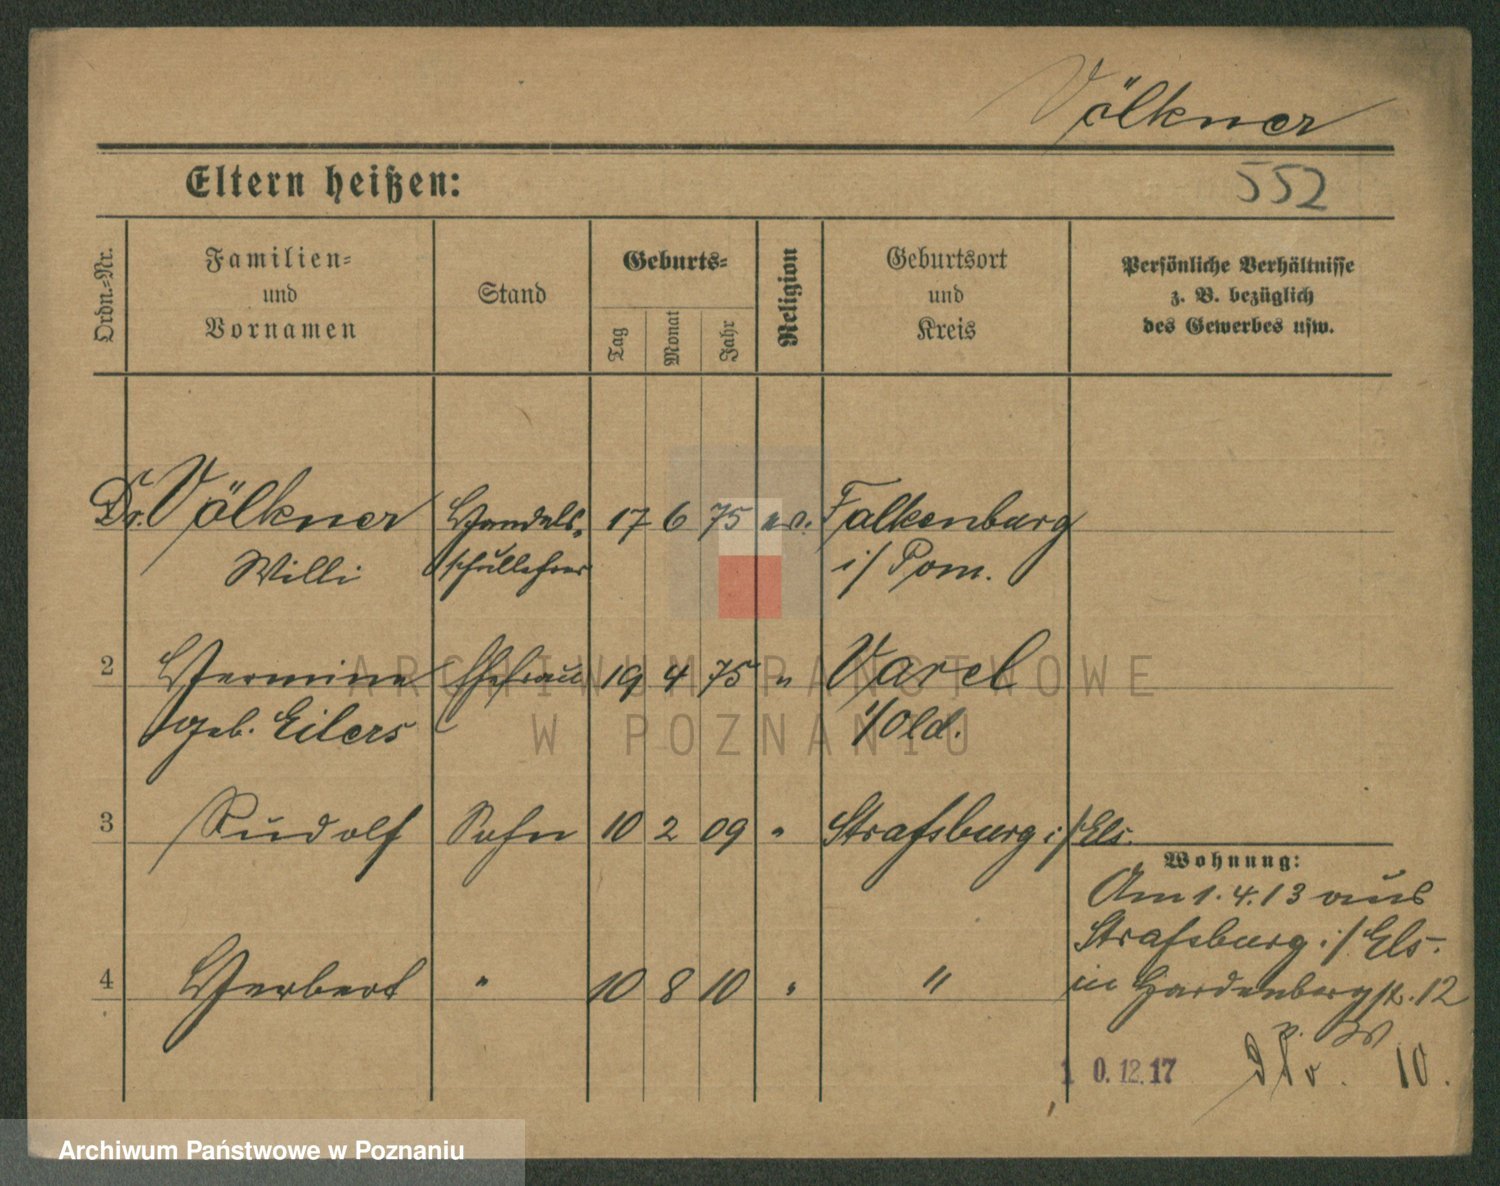 Völkner
Eltern heißen:
552
Ordn.-Nr.
Familien-
und
Vornamen
Stand
Geburts-
Tag
Monat
Jahr
Religion
Geburtsort
und
Kreis
Persönliche Verhältnisse
z. B. bezüglich
des Gewerbes usw.
Dr. Völkner Handels- 17 6 75 ev. Falkenburg
Willi schullehrer i/ Pom.
2 Hermine Ehefrau 19 4 75 " Varel
geb. Eilers i/Old.
3 Rudolf Sohn 10 2 09 " Straßburg i/Els.
Wohnung:
Am 1.4.13 aus
Straßburg i/ Els.
4 Herbert " 10 8 10 " " in Hardenbergstr. 12
10.12.17
10.
ARCHIWUM PAŃSTWOWE
W POZNANIU
Archiwum Państwowe w Poznaniu